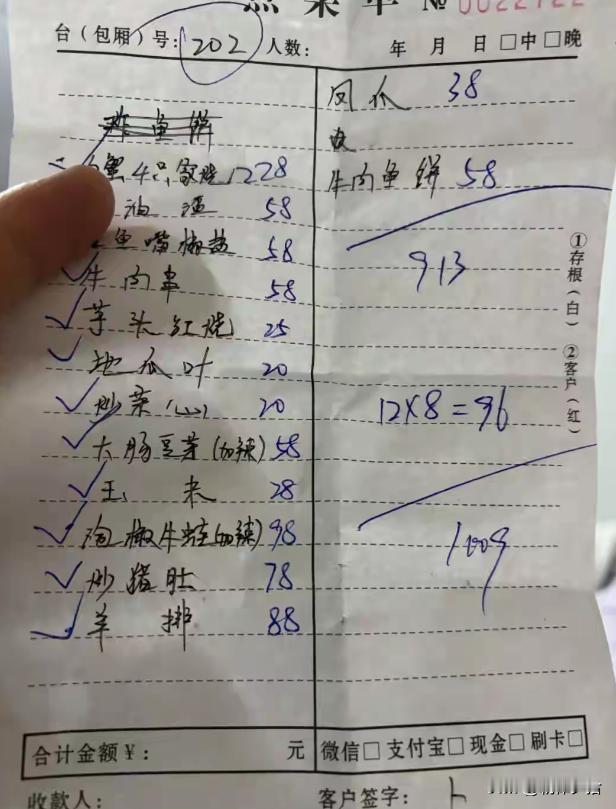 点菜单 № 0022122
台（包厢）号：202 人数： 年 月 日 □中 □晚
蟹4只家烧 228
油渣 58
鱼嘴椒盐 58
牛肉串 58
芋头红烧 25
地瓜叶 20
炒菜(心) 20
大肠豆芽(加辣) 58
玉米 28
泡椒牛蛙(加辣) 98
炒猪肚 78
羊排 88
凤爪 38
牛肉鱼饼 58
913
12×8=96
1009
①存根（白）
②客户（红）
合计金额¥： 元 微信□ 支付宝□ 现金□ 刷卡□
收款人： 客户签字：